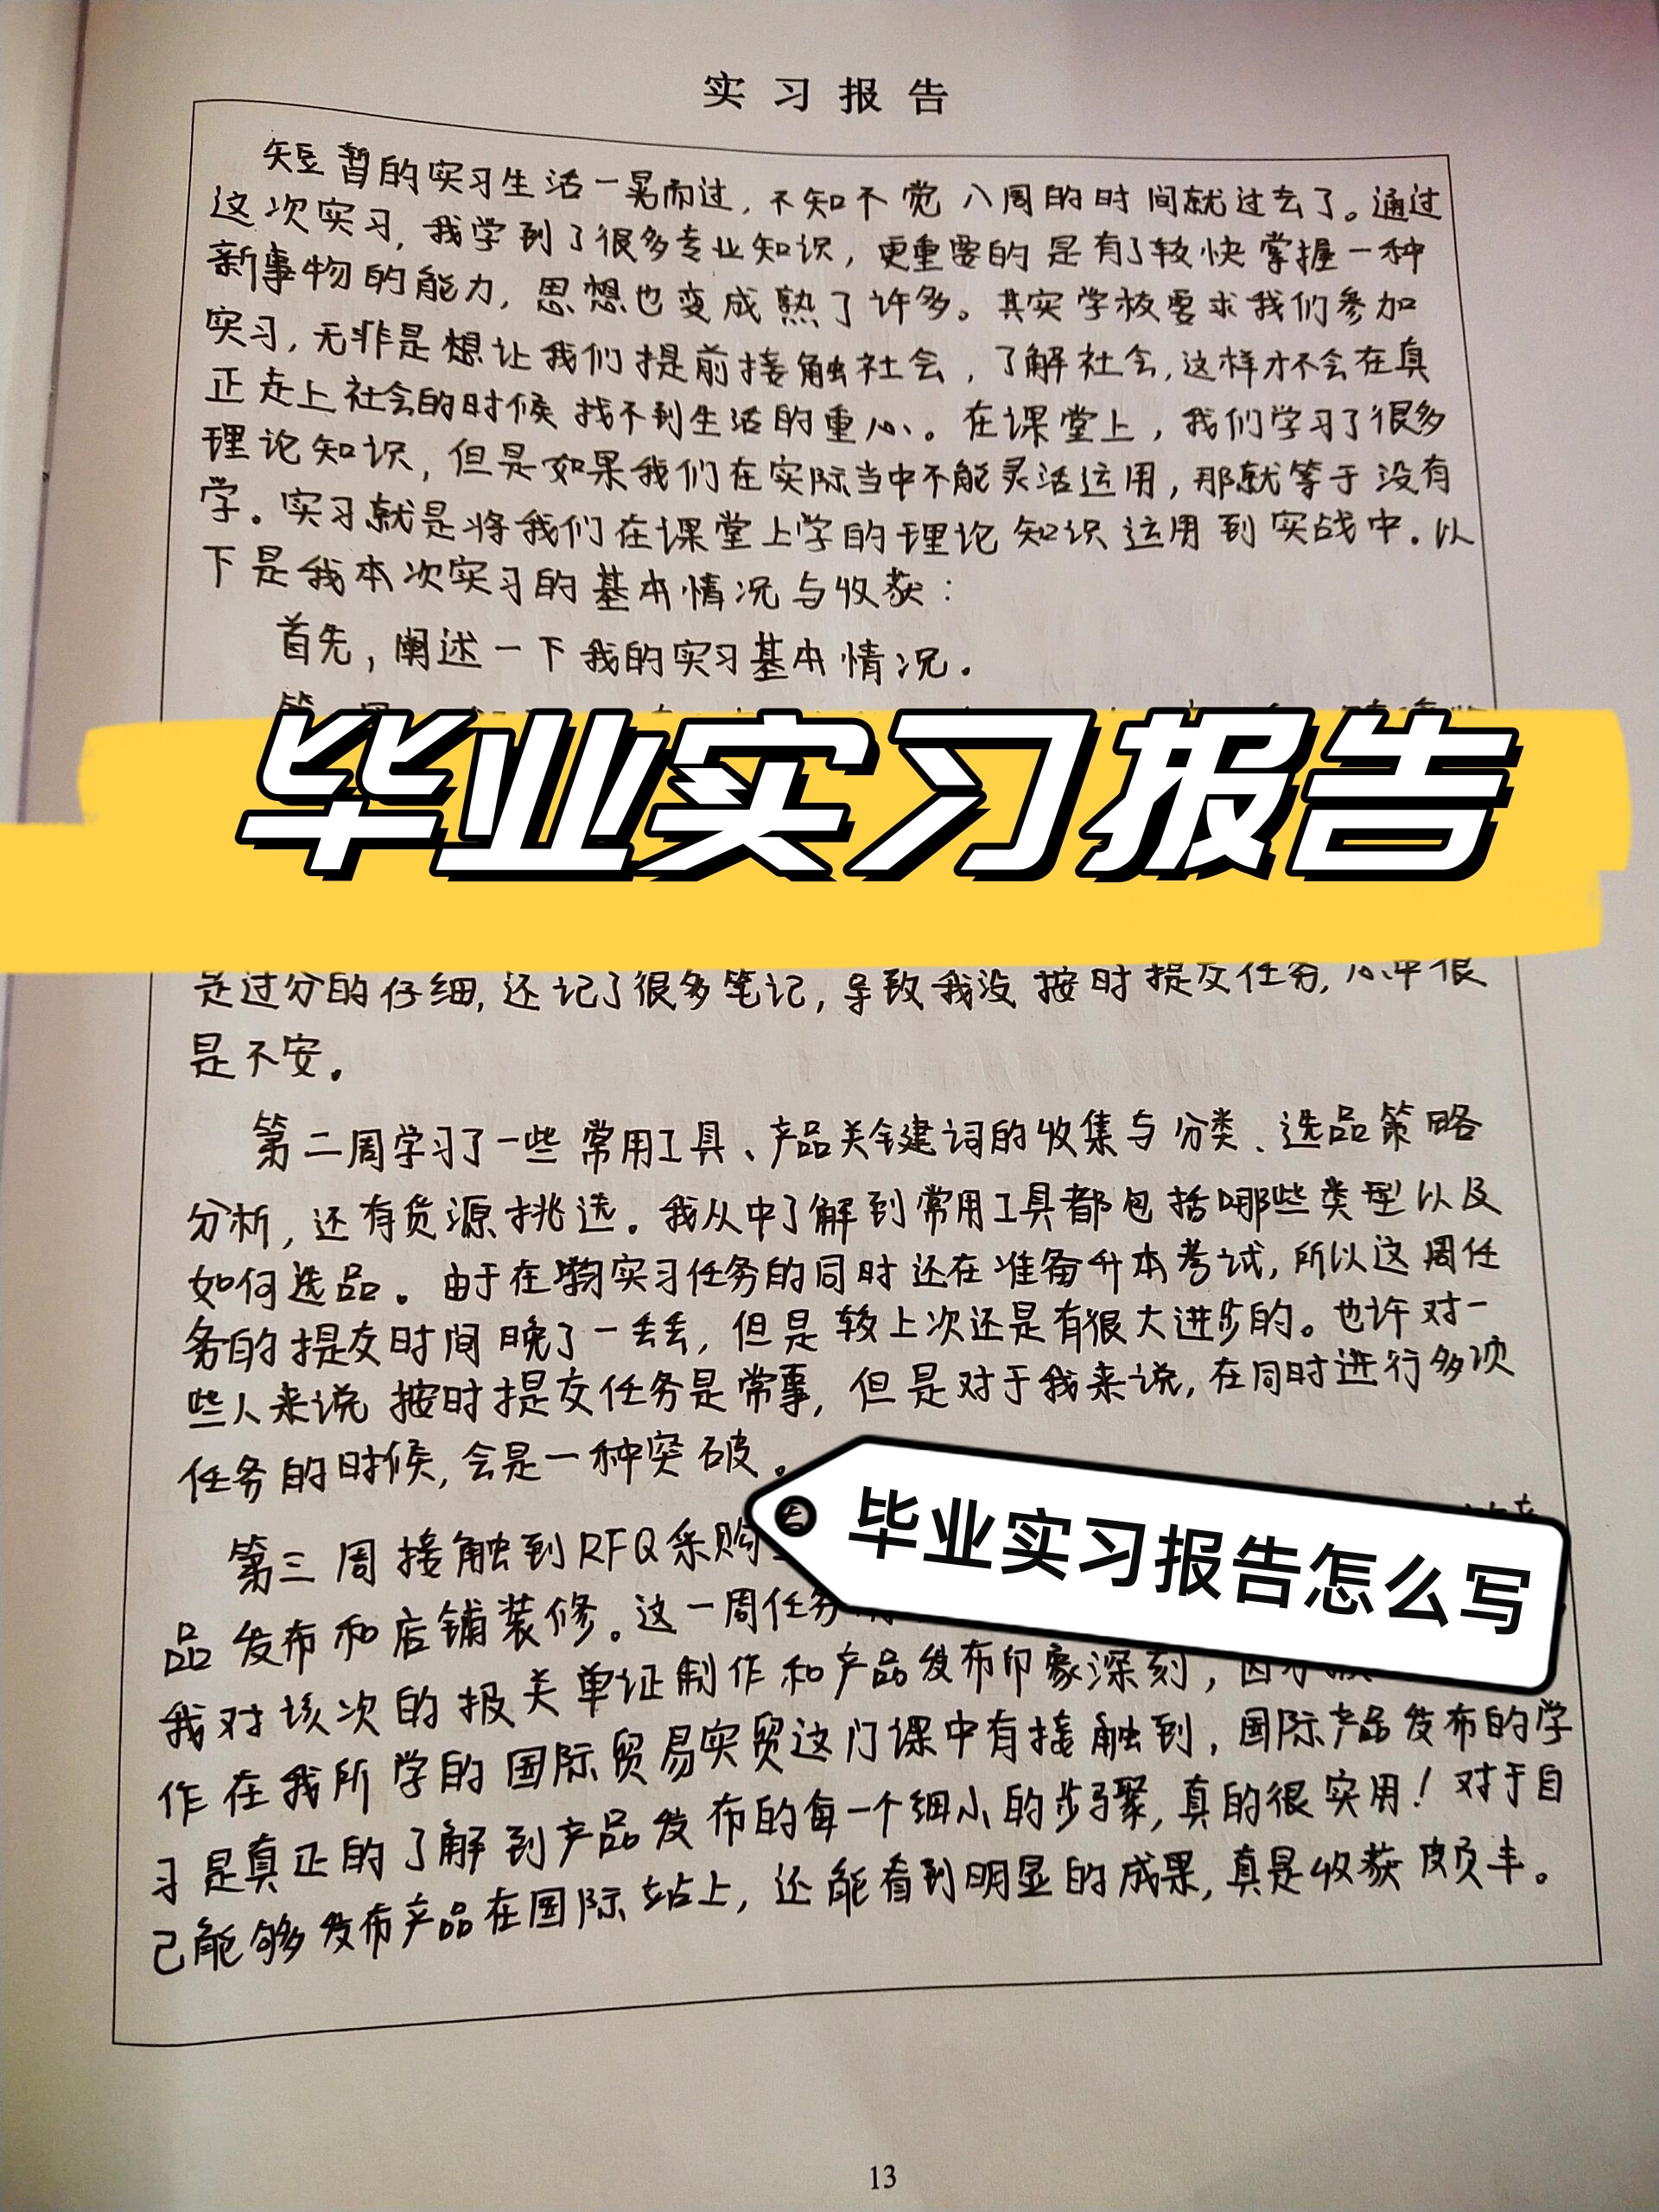 实习报告
短暂的实习生活一晃而过，不知不觉八周的时间就过去了。通过
这次实习，我学到了很多专业知识，更重要的是有了较快掌握一种
新事物的能力，思想也变成熟了许多。其实学校要求我们参加
实习，无非是想让我们提前接触社会，了解社会，这样才不会在真
正走上社会的时候找不到生活的重心。在课堂上，我们学习了很多
理论知识，但是如果我们在实际当中不能灵活运用，那就等于没有
学。实习就是将我们在课堂上学的理论知识运用到实战中。以
下是我本次实习的基本情况与收获：
首先，阐述一下我的实习基本情况。
毕业实习报告
是过分的仔细，还记了很多笔记，导致我没按时提交任务，心中很
是不安。
第二周学习了一些常用工具、产品关键词的收集与分类、选品策略
分析，还有货源挑选。我从中了解到常用工具都包括哪些类型以及
如何选品。由于在做实习任务的同时还在准备升本考试，所以这周任
务的提交时间晚了一丢丢，但是较上次还是有很大进步的。也许对一
些人来说按时提交任务是常事，但是对于我来说，在同时进行多项
任务的时候，会是一种突破。
毕业实习报告怎么写
第三周接触到RFQ采购
品发布和店铺装修。这一周任务
我对该次的报关单证制作和产品发布印象深刻，因为
作在我所学的国际贸易实贸这门课中有接触到，国际产品发布的学
习是真正的了解到产品发布的每一个细小的步骤，真的很实用！对于自
己能够发布产品在国际站上，还能看到明显的成果，真是收获颇丰。
13